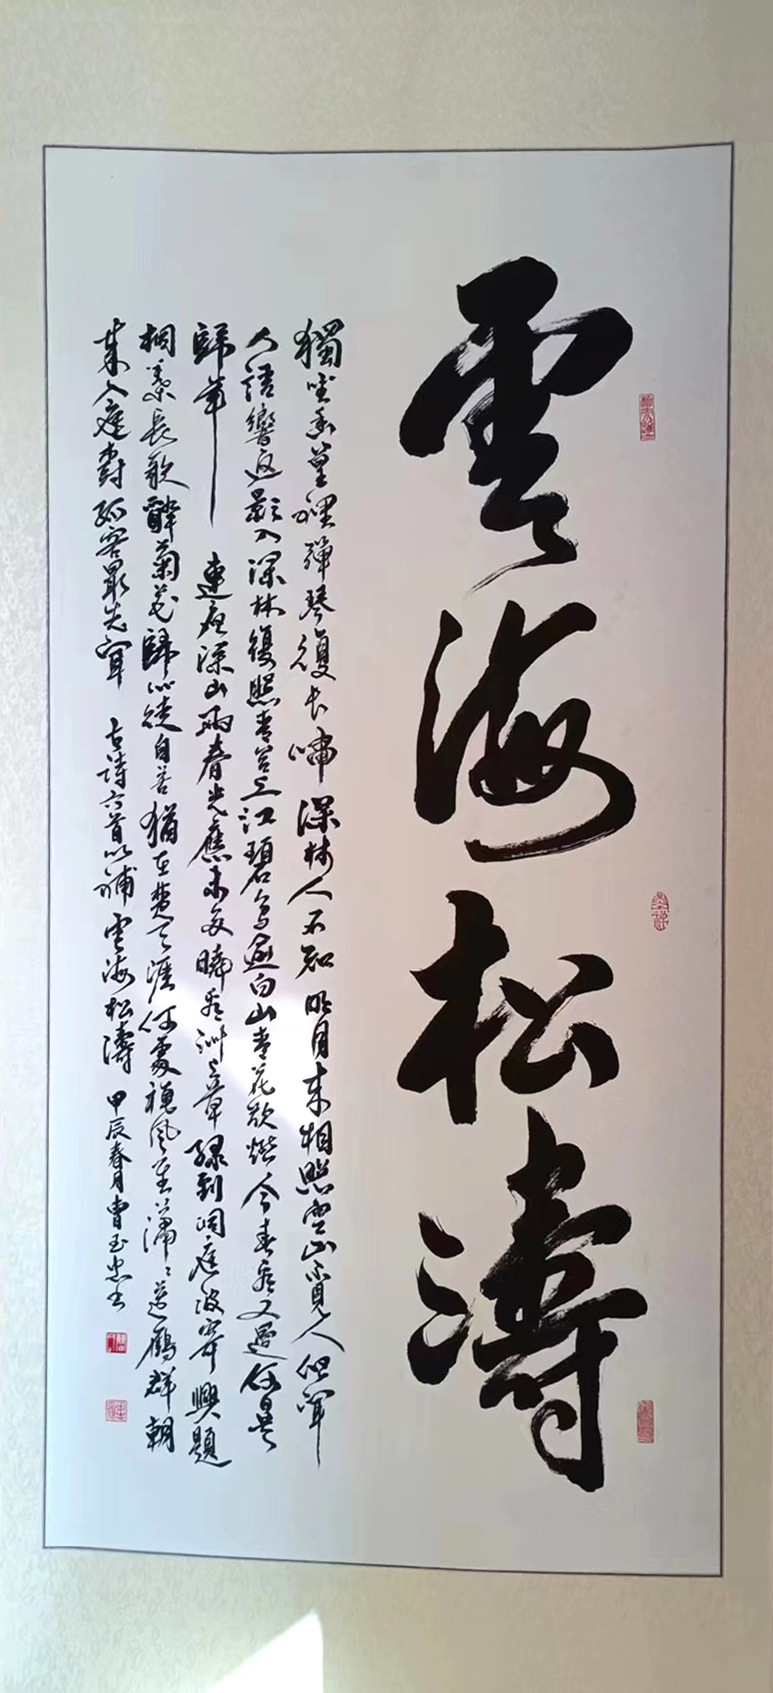 雲海松濤
獨坐幽篁裡彈琴復长嘯深林人不知明月来相照空山不見人但聞
人語響返影入深林復照青苔上江碧鸟逾白山青花欲燃今春看又過何日是
歸年 連夜深山雨春光應未多晓看洲上草緑到洞庭波寄興題
桐葉長歌醉菊花歸心徒自苦猶在楚天涯何處秋風至蕭〻送雁群朝
来入庭樹孤客最先聞 古詩六首以補雲海松濤 甲辰春月曹玉忠书